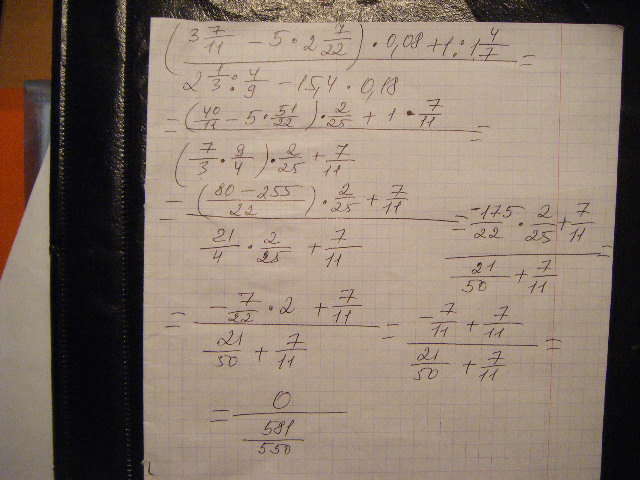 (3 7/11 - 5 · 2 7/22) · 0,08 + 1 : 1 4/7 =
2 1/3 : 4/9 - 15,4 · 0,18
= (40/11 - 5 · 51/22) · 2/25 + 1 · 7/11 =
(7/3 · 9/4) · 2/25 + 7/11
= (80 - 255 / 22) · 2/25 + 7/11 = -175/22 · 2/25 + 7/11 =
21/4 · 2/25 + 7/11
21/50 + 7/11
= -7/22 · 2 + 7/11 = -7/11 + 7/11 =
21/50 + 7/11
21/50 + 7/11
= 0
581/550